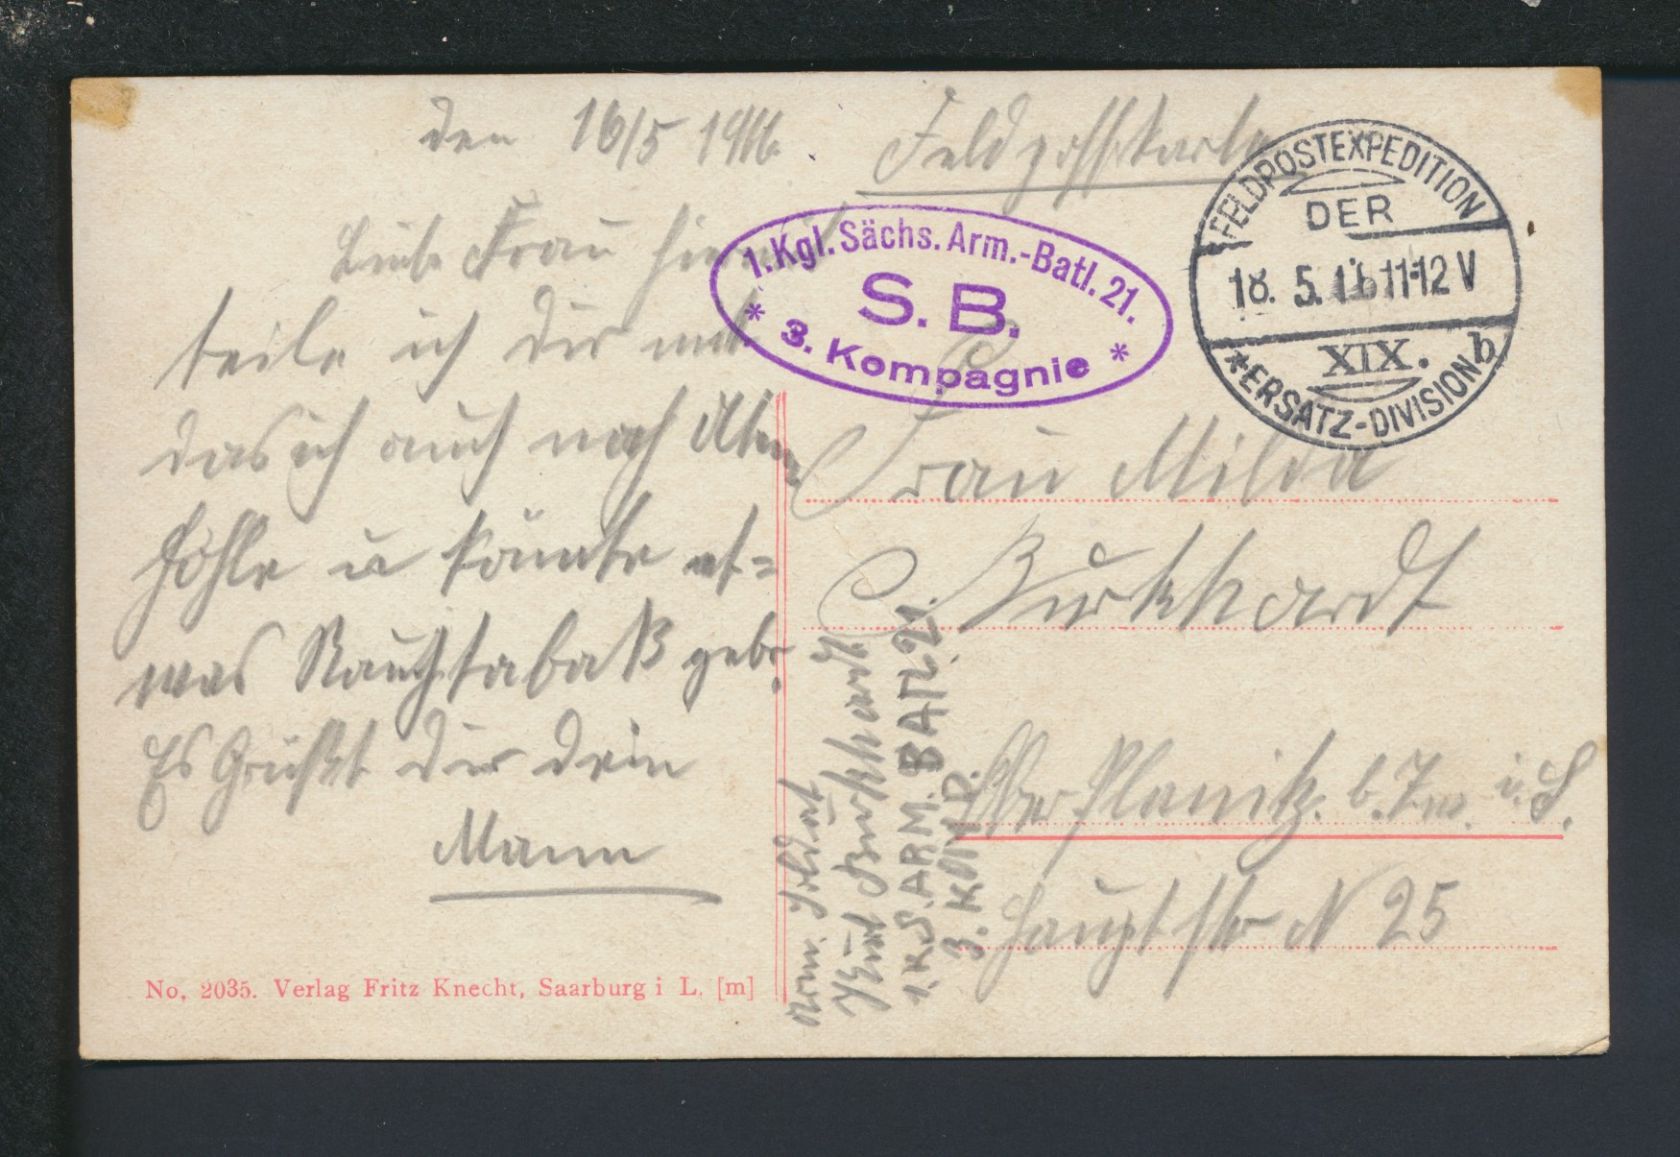 den 16/5 1916.
Feldpostkarte
Liebe Frau hiermit
teile ich dir mit
das ich auch noch
u könnte et=
was Rauchtabak gebr.
Es Grüßt dir dein
Mann
1. Kgl. Sächs. Arm.-Batl. 21.
S. B.
* 3. Kompagnie *
FELDPOSTEXPEDITION
DER
18. 5. 16 11-12 V
XIX. b
* ERSATZ-DIVISION
Frau Milda
Burkhardt
Ober Planitz. b. Zw. i. S.
Hauptstr N 25
Arm. Soldat
Kurt Burkhardt
1. K. S. ARM. BATL. 21.
3. KOMP.
No, 2035. Verlag Fritz Knecht, Saarburg i L. [m]